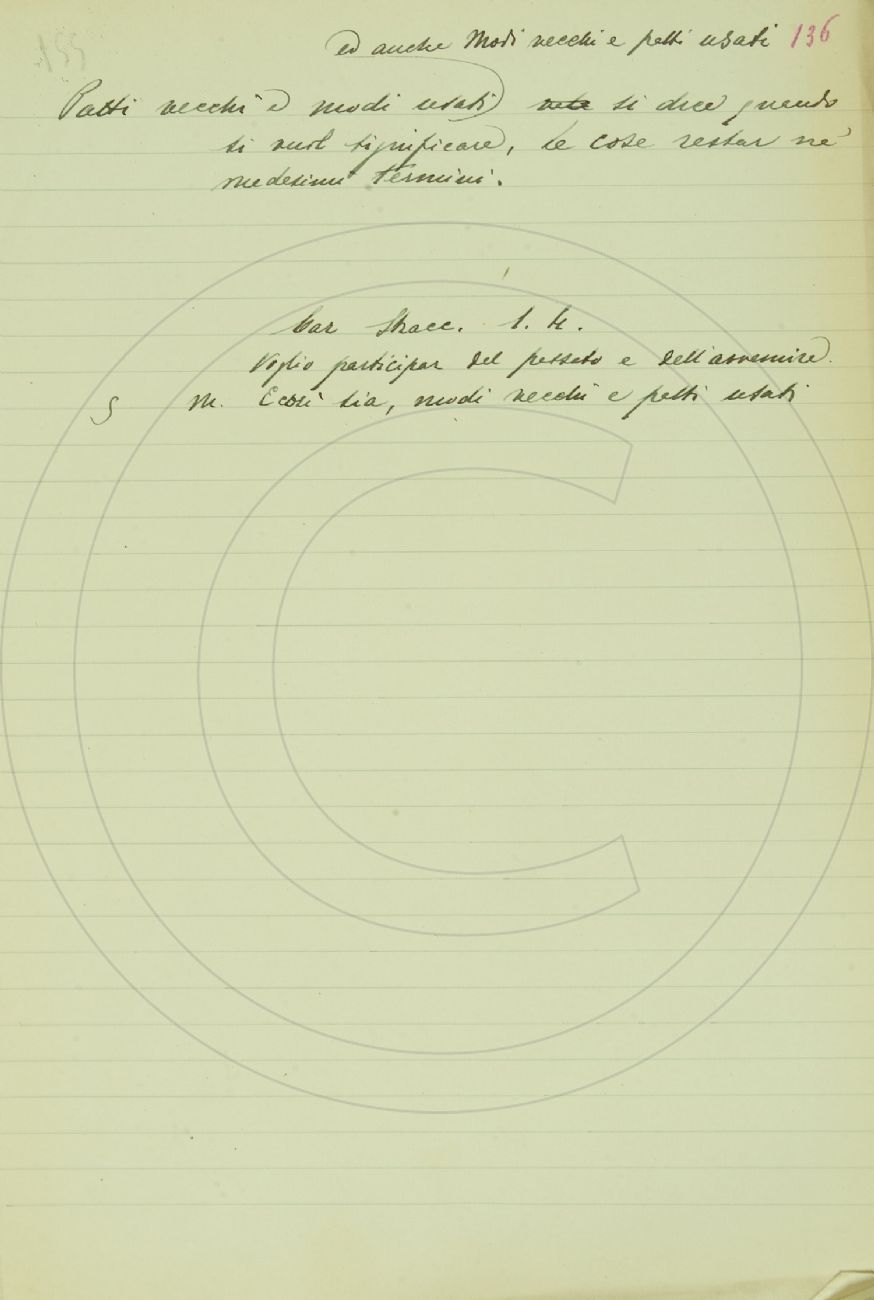 ed anche Modi vecchi e patti usati 136
Patti vecchi e modi usati) si dice quando
si vuol significare, le cose restar ne'
medesimi termini.
Car Stracc. 1. 4.
Voglio participar del passato e dell'avvenire.
M. E così sia, modi vecchi e patti usati